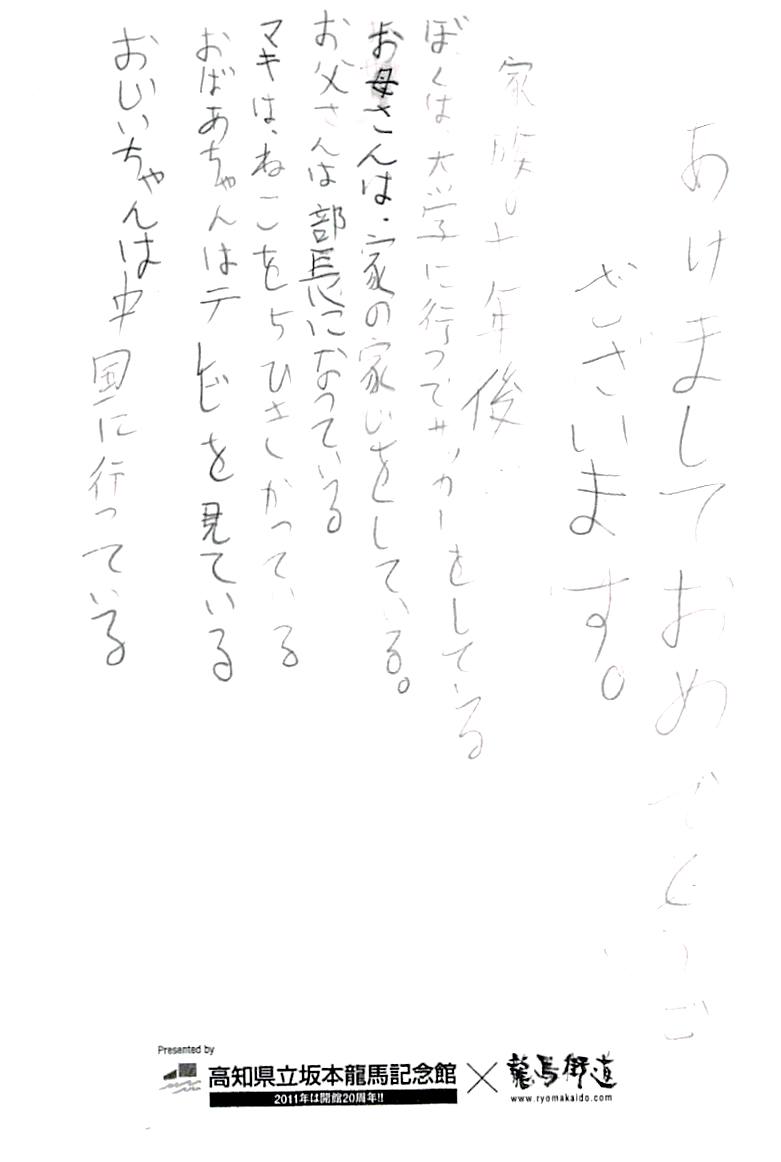 あけましておめでとうご
ございます。
家族の十年後…
ぼくは、大学に行ってサッカーをしている
お母さんは、家の家じをしている。
お父さんは部長になっている
マキは、ねこをちひさしかっている
おばあちゃんはテレビを見ている
おじいちゃんは中国に行っている
Presented by
高知県立坂本龍馬記念館
2011年は開館20周年!!
×
龍馬街道
www.ryomakaido.com